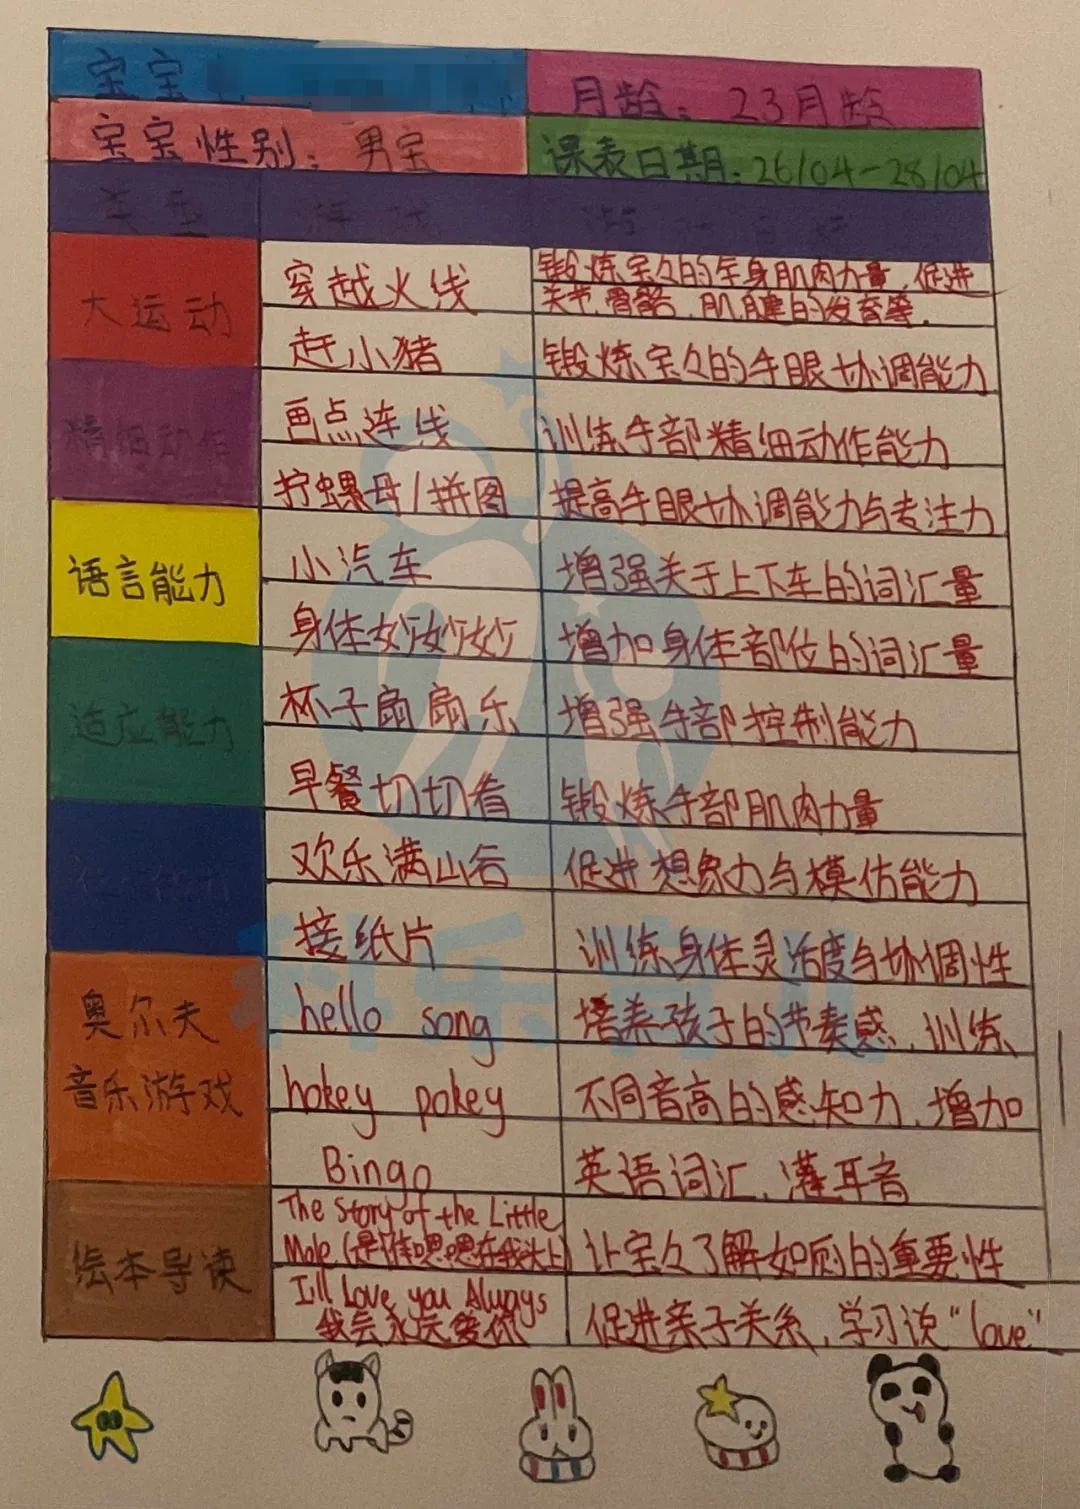 宝宝
月龄：23月龄
宝宝性别：男宝
课表日期：26/04-28/04
类型
大运动
穿越火线
锻炼宝々的全身肌肉力量，促进
关节、骨骼、肌腱的发育等.
赶小猪
锻炼宝々的手眼协调能力
精细动作
画点连线
训练手部精细动作能力
拧螺母/拼图
提高手眼协调能力与专注力
语言能力
小汽车
增强关于上下车的词汇量
身体妙妙妙
增加身体部位的词汇量
适应能力
杯子扇扇乐
增强手部控制能力
早餐切切看
锻炼手部肌肉力量
能力
欢乐满山谷
促进想象力与模仿能力
接纸片
训练身体灵活度与协调性
奥尔夫
音乐游戏
hello song
培养孩子的节奏感，训练
hokey pokey
不同音高的感知力，增加
Bingo
英语词汇，灌耳音
绘本导读
The Story of the Little
Mole (是谁嗯嗯在我头上)
让宝々了解如厕的重要性
I'll Love you Always
我会永远爱你
促进亲子关系，学习说"love"
科乐育儿